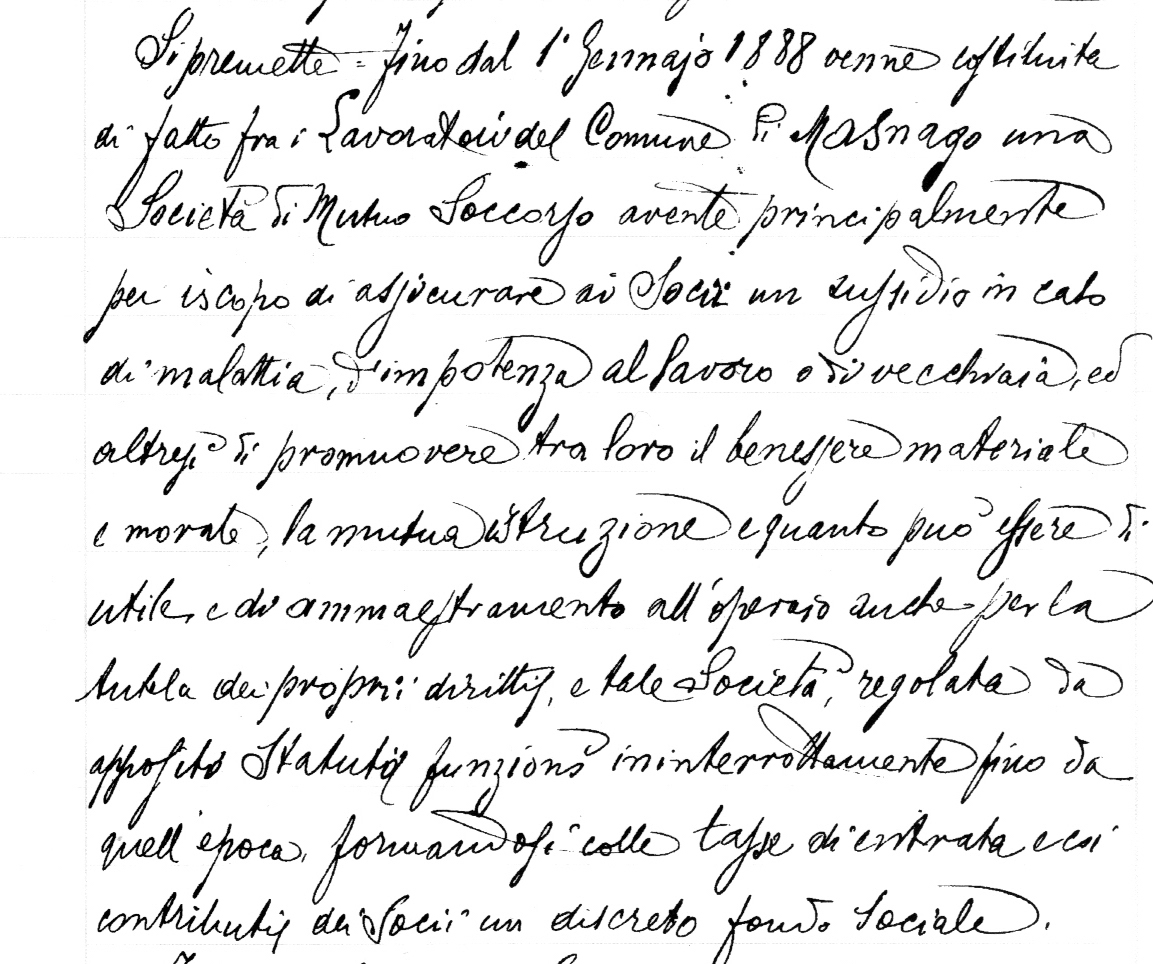 Si premette = Fino dal 1° Gennajo 1888 venne costituita
di fatto fra i Lavoratori del Comune di Masnago una
Società di Mutuo Soccorso avente principalmente
per iscopo di assicurare ai Socii un sussidio in caso
di malattia, d'impotenza al lavoro o di vecchiaia, ed
altresì di promuovere tra loro il benessere materiale
e morale, la mutua istruzione e quanto può essere di
utile e di ammaestramento all'operaio anche per la
tutela dei proprii diritti, e tale Società, regolata da
apposito Statuto funzionò ininterrottamente fino da
quell'epoca, formandosi colle tasse di entrata e coi
contributi dei Socii un discreto fondo Sociale.